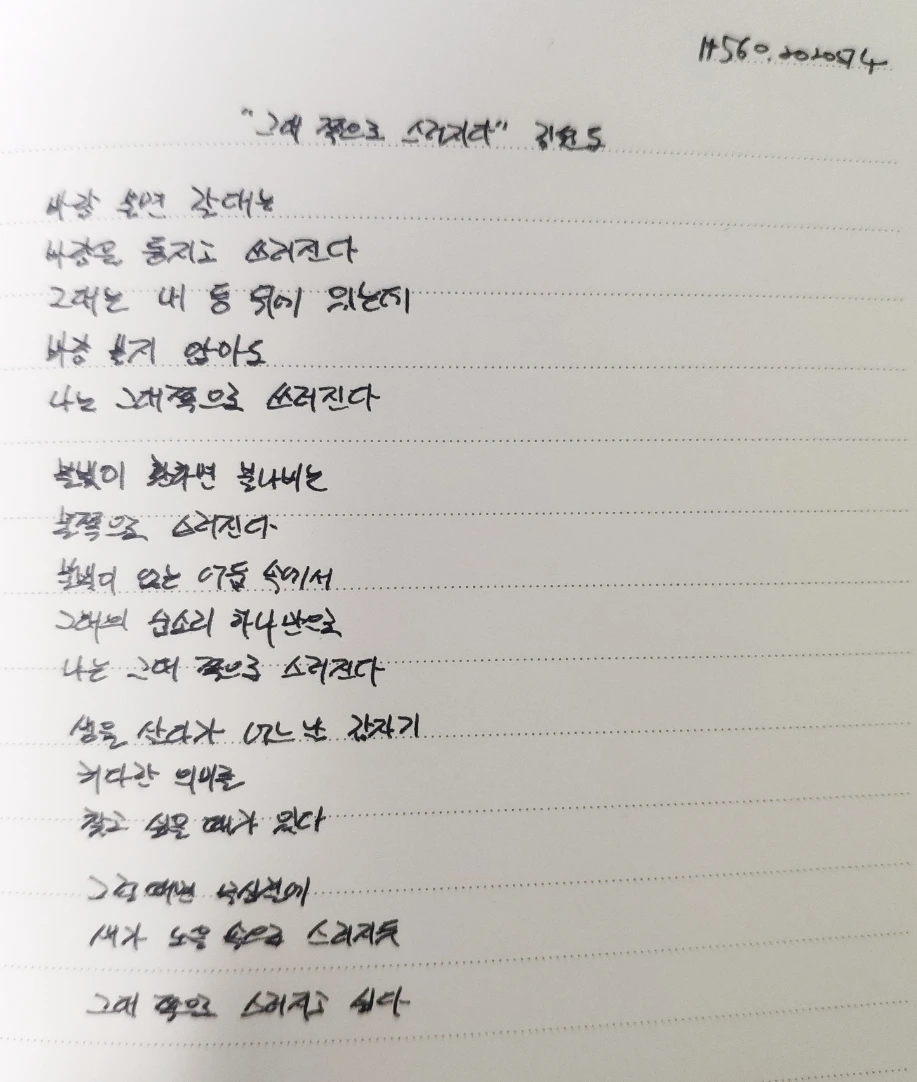 #560. 202074
"그대 쪽으로 스러지다" 김현도
바람 불면 갈대는
바람을 등지고 쓰러진다
그대는 내 등 뒤에 있는지
바람 불지 않아도
나는 그대쪽으로 쓰러진다
불빛이 환하면 불나비는
불쪽으로 스러진다
불빛이 없는 어둠 속에서
그대의 숨소리 하나만으로
나는 그대 쪽으로 스러진다
생을 산다가 어느 날 갑자기
커다란 의미를
찾고 싶을 때가 있다
그럴때면 무심결에
새가 노을 속으로 스러지듯
그대 쪽으로 스러지고 싶다